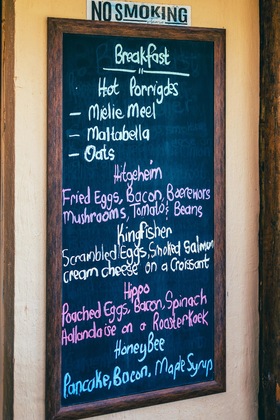 NO SMOKING
Breakfast
Hot Porrigds
- Mielie Meel
- Maltabella
- Oats
Hitgeheim
Fried Eggs, Bacon, Boerewors
Mushrooms, Tomato & Beans
Kingfisher
Scrambled Eggs, Smoked Salmon
cream cheese on a Croissant
Hippo
Poached Eggs, Bacon, Spinach
Hollandaise on a Roosterkoek
HoneyBee
Pancake, Bacon, Maple Syrup